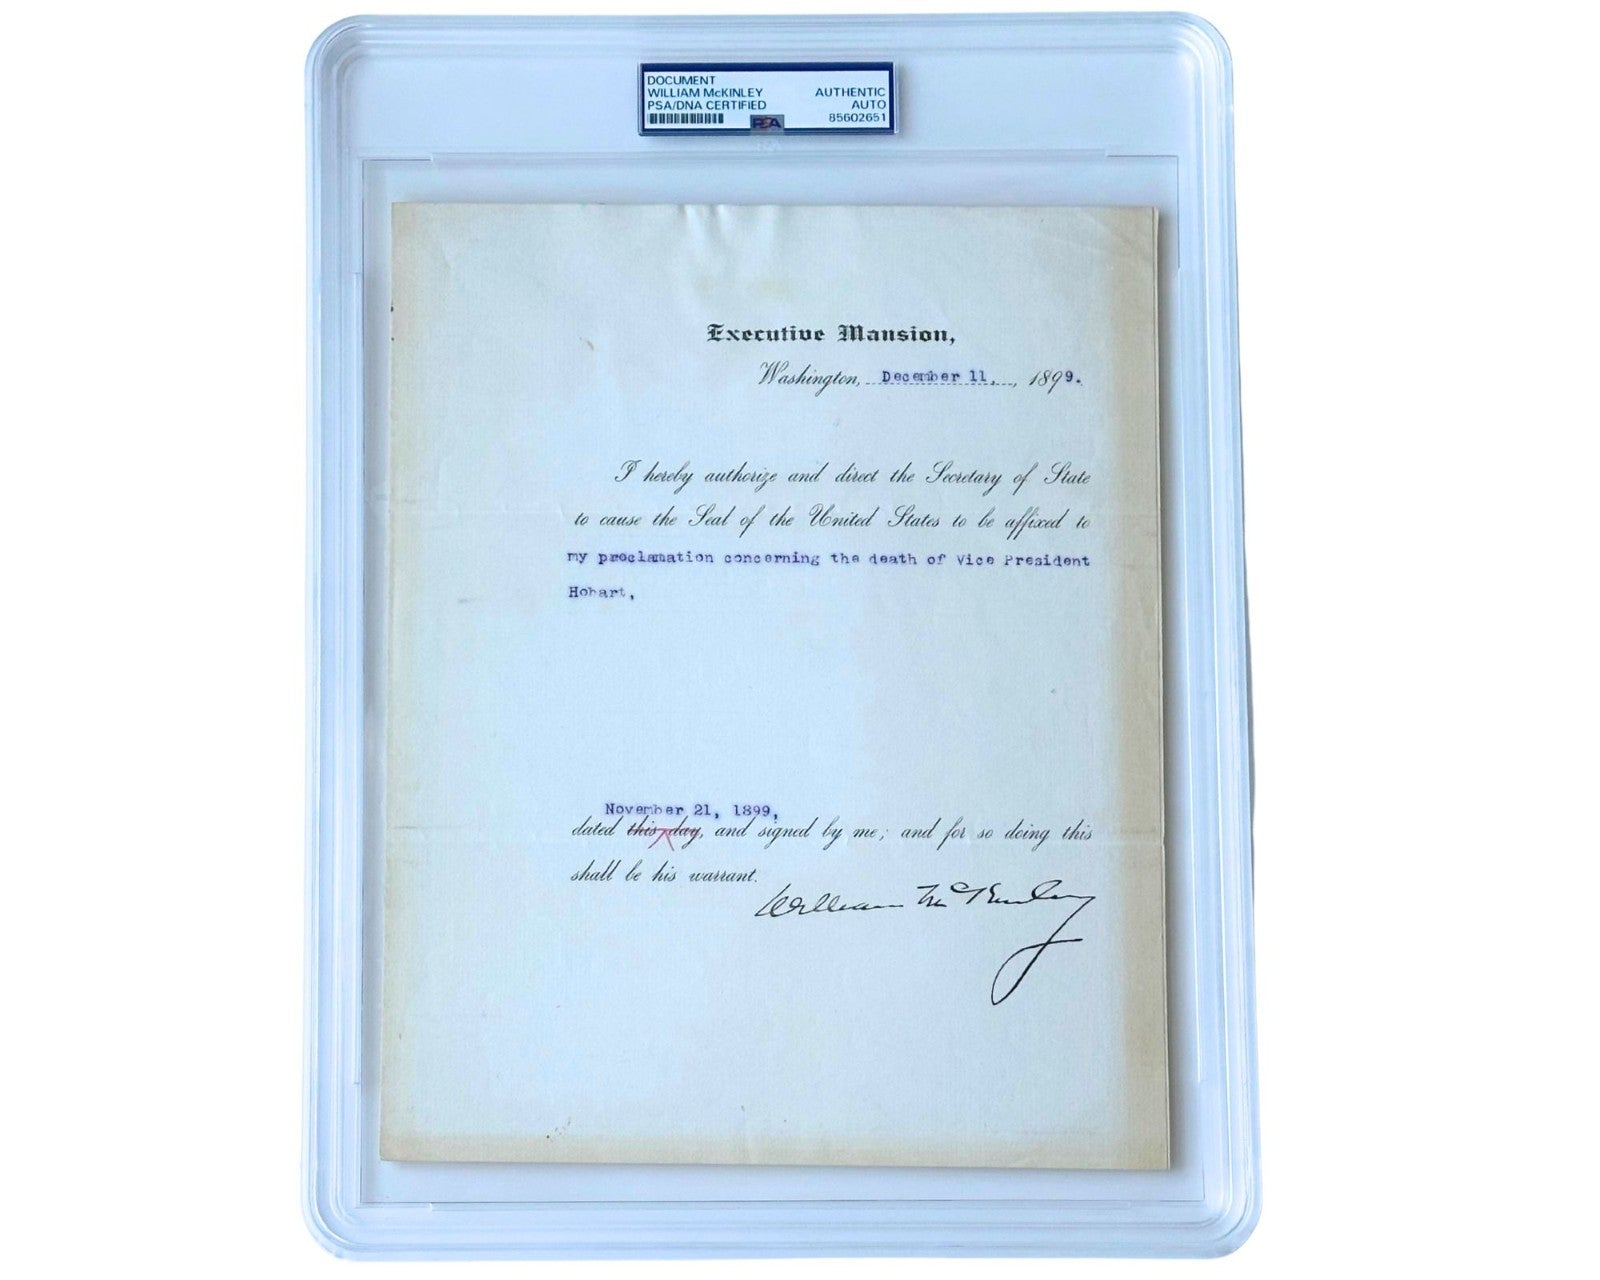 DOCUMENT
WILLIAM McKINLEY AUTHENTIC
PSA/DNA CERTIFIED AUTO
PSA 85602651
Executive Mansion,
Washington, December 11, , 1899.
I hereby authorize and direct the Secretary of State
to cause the Seal of the United States to be affixed to
my proclamation concerning the death of Vice President
Hobart,
November 21, 1899,
dated this day, and signed by me; and for so doing this
shall be his warrant.
William McKinley